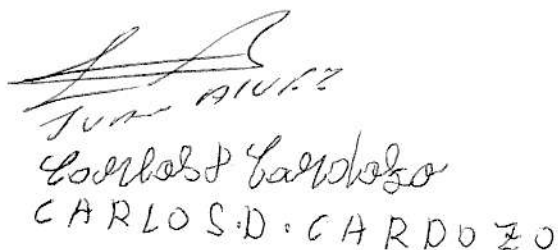 Juan Alvez
Carlos D Cardozo
CARLOS.D.CARDOZO